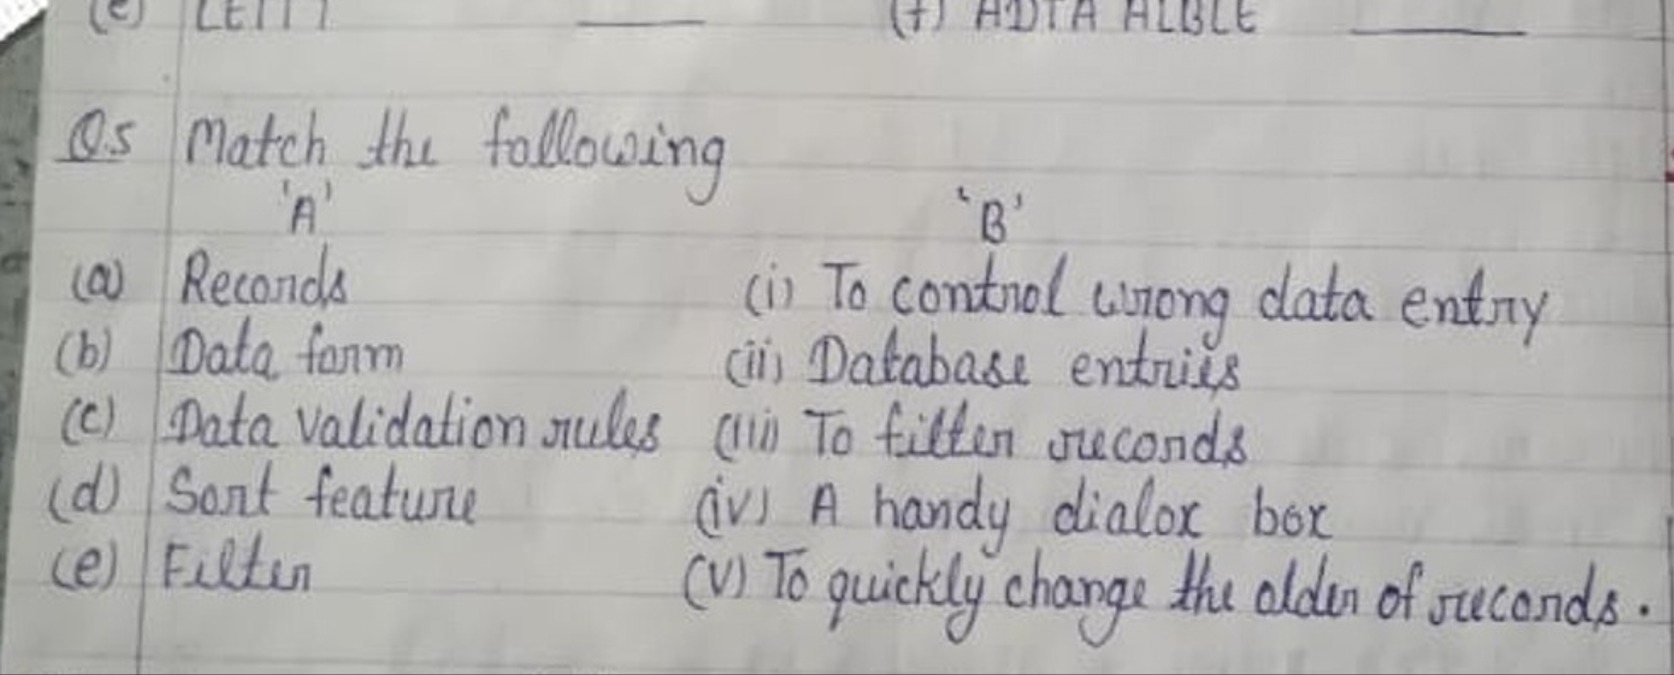 (e) LEITT ____ (f) ADTA ALBLE ____
Q.5 Match the following
'A' 'B'
(a) Records (i) To control wrong data entry
(b) Data form (ii) Database entries
(c) Data validation rules (iii) To filter records
(d) Sort feature (iv) A handy dialox box
(e) Filter (v) To quickly change the older of records.